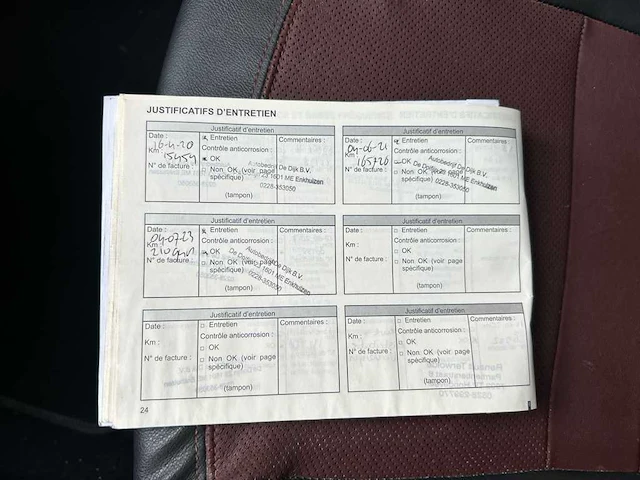 JUSTIFICATIFS D'ENTRETIEN
Justificatif d'entretien
Date : 16-4-20
Km :
N° de facture :
Entretien
Contrôle anticorrosion :
OK
Non OK (voir page spécifique)
(tampon)
Commentaires :
Autobedrijf De Dijk B.V.
1601 ME Enkhuizen
0228-353050
Justificatif d'entretien
Date :
04-06-21
Km :
165726
N° de facture :
Entretien
Contrôle anticorrosion :
OK
Non OK (voir page spécifique)
(tampon)
Commentaires :
Autobedrijf De Dijk B.V.
1601 ME Enkhuizen
0228-353050
Justificatif d'entretien
Date :
04-07-23
Km :
N° de facture :
Entretien
Contrôle anticorrosion :
OK
Non OK (voir page spécifique)
(tampon)
Commentaires :
Autobedrijf De Dijk B.V.
1601 ME Enkhuizen
0228-353050
Justificatif d'entretien
Date :
Km :
N° de facture :
Entretien
Contrôle anticorrosion :
OK
Non OK (voir page spécifique)
(tampon)
Commentaires :
Justificatif d'entretien
Date :
Km :
N° de facture :
Entretien
Contrôle anticorrosion :
OK
Non OK (voir page spécifique)
(tampon)
Commentaires :
Justificatif d'entretien
Date :
Km :
N° de facture :
Entretien
Contrôle anticorrosion :
OK
Non OK (voir page spécifique)
(tampon)
Commentaires :
24